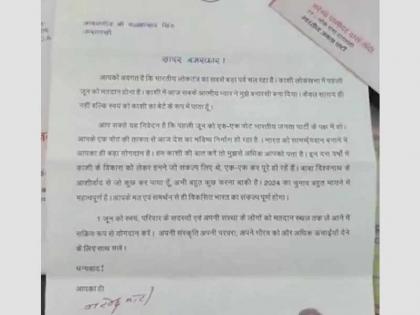 सादर नमस्कार !
आपको अवगत है कि भारतीय लोकतंत्र का सबसे बड़ा पर्व चल रहा है। काशी लोकसभा में पहली
जून को मतदान होना है। काशी में आज सबके आत्मीय प्यार ने मुझे बनारसी बना दिया। केवल सांसद ही
नहीं बल्कि स्वयं को काशी का बेटे के रूप में पाता हूँ।
आप सबसे यह निवेदन है कि पहली जून को एक-एक वोट भारतीय जनता पार्टी के पक्ष में हो।
आपके एक वोट की ताकत से आज देश का भविष्य निर्माण हो रहा है। भारत को सामर्थ्यवान बनाने में
आपका ही बड़ा योगदान है। हम काशी की बात करें तो मुझसे अधिक आपको पता है। इन दस वर्षों में
काशी के विकास को लेकर हमने जो संकल्प लिए थे, एक-एक कर पूरे हो रहे हैं। बाबा विश्वनाथ के
आशीर्वाद से जो कुछ कर पाया हूँ, अभी बहुत कुछ करना बाकी है। 2024 का चुनाव बहुत मायने में
महत्वपूर्ण है। आपके मत एवं समर्थन से ही विकसित भारत का संकल्प पूर्ण होगा।
1 जून को स्वयं, परिवार के सदस्यों एवं अपनी संस्था के लोगों को मतदान स्थल तक ले आने में
सक्रिय रूप से योगदान करें। अपनी संस्कृति अपनी परंपरा, अपने गौरव को और अधिक ऊंचाईयां देने
के लिए साथ चलें।
धन्यवाद !
आपका ही